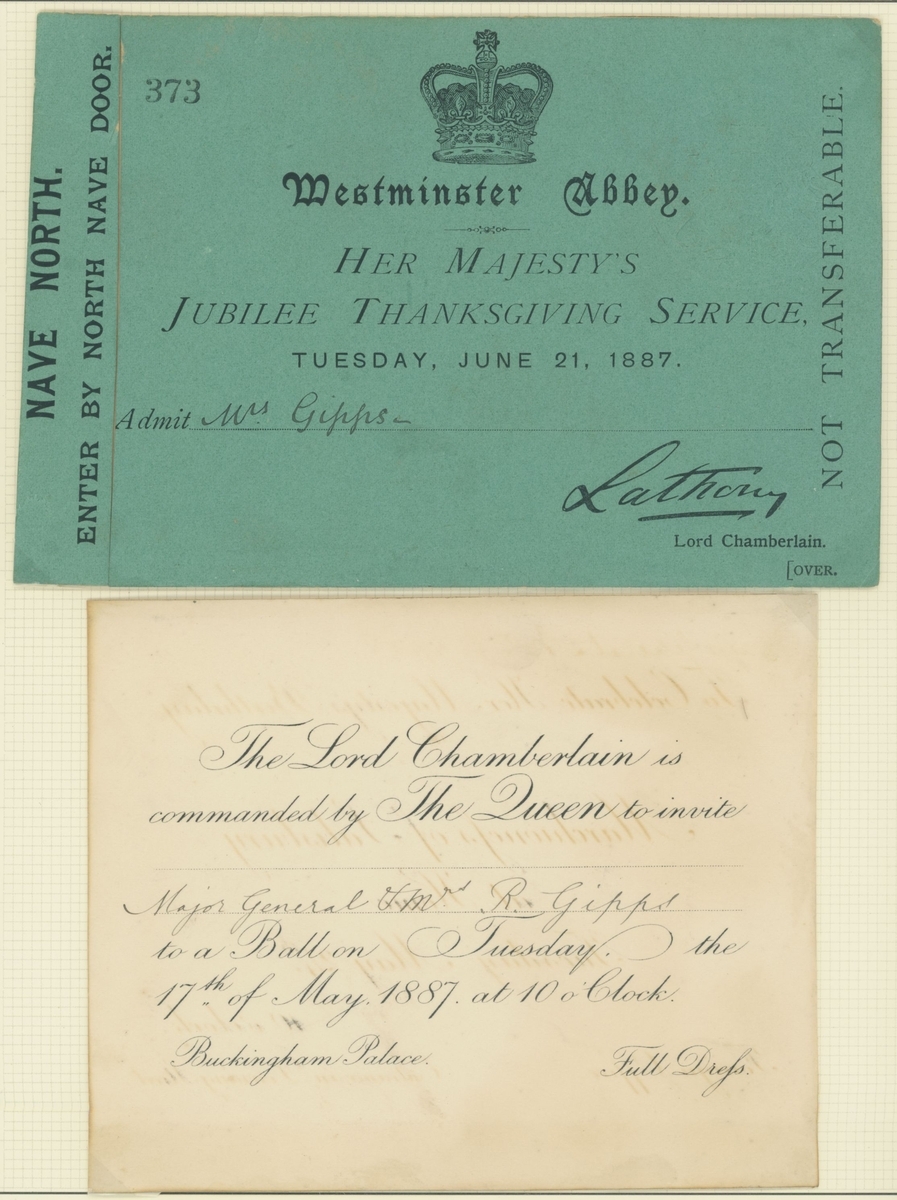 NAVE NORTH.
ENTER BY NORTH NAVE DOOR.
373
Westminster Abbey.
HER MAJESTY'S
JUBILEE THANKSGIVING SERVICE,
TUESDAY, JUNE 21, 1887.
Admit Mrs. Gipps
Lathom
Lord Chamberlain.
[OVER.
NOT TRANSFERABLE.
The Lord Chamberlain is
commanded by The Queen to invite
Major General & Mrs R. Gipps
to a Ball on Tuesday. the
17th of May. 1887. at 10 o'Clock.
Buckingham Palace.
Full Dreſs.